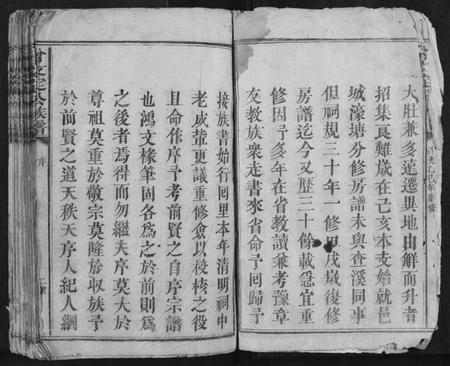 大壯兼多遠遷異地由解而升者
招集良難歲在己亥本支始就邑
城濠塘分修房譜未與查溪同事
但祠規三十年一修甲戌歲復修
房譜迄今又歷三十餘載急宜重
修因予多年在省教讀兼考豫章
友教族衆走書來省命予回歸予
光緒乙巳年重修
接族書始行回里本年清明祠中
老成輩更議重修僉以校核之役
且命作序予考前賢之自序宗譜
也鴻文椽筆固各爲之於前則爲
之後者焉得而勿繼夫序莫大於
尊祖莫重於敬宗莫隆於收族予
於前賢之道天秩天序人紀人綱
序